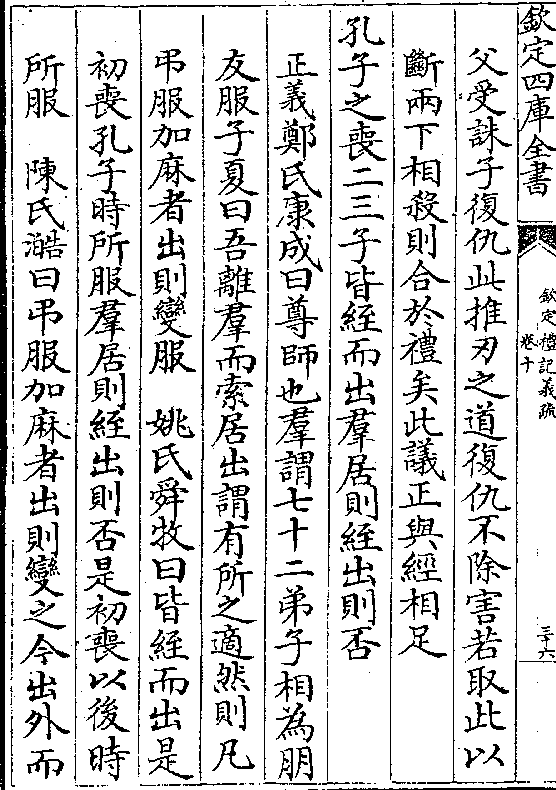 欽定四庫全書
欽定禮記義疏
卷十
三十六
父受誅子復仇此推刃之道復仇不除害若取此以
斷兩下相殺則合於禮矣此議正與經相足
孔子之喪二三子皆絰而出羣居則絰出則否
正義鄭氏康成曰尊師也羣謂七十二弟子相為朋
友服子夏曰吾離羣而索居出謂有所之適然則凡
弔服加麻者出則變服　姚氏舜牧曰皆絰而出是
初喪孔子時所服羣居則絰出則否是初喪以後時
所服　陳氏澔曰弔服加麻者出則變之今出外而